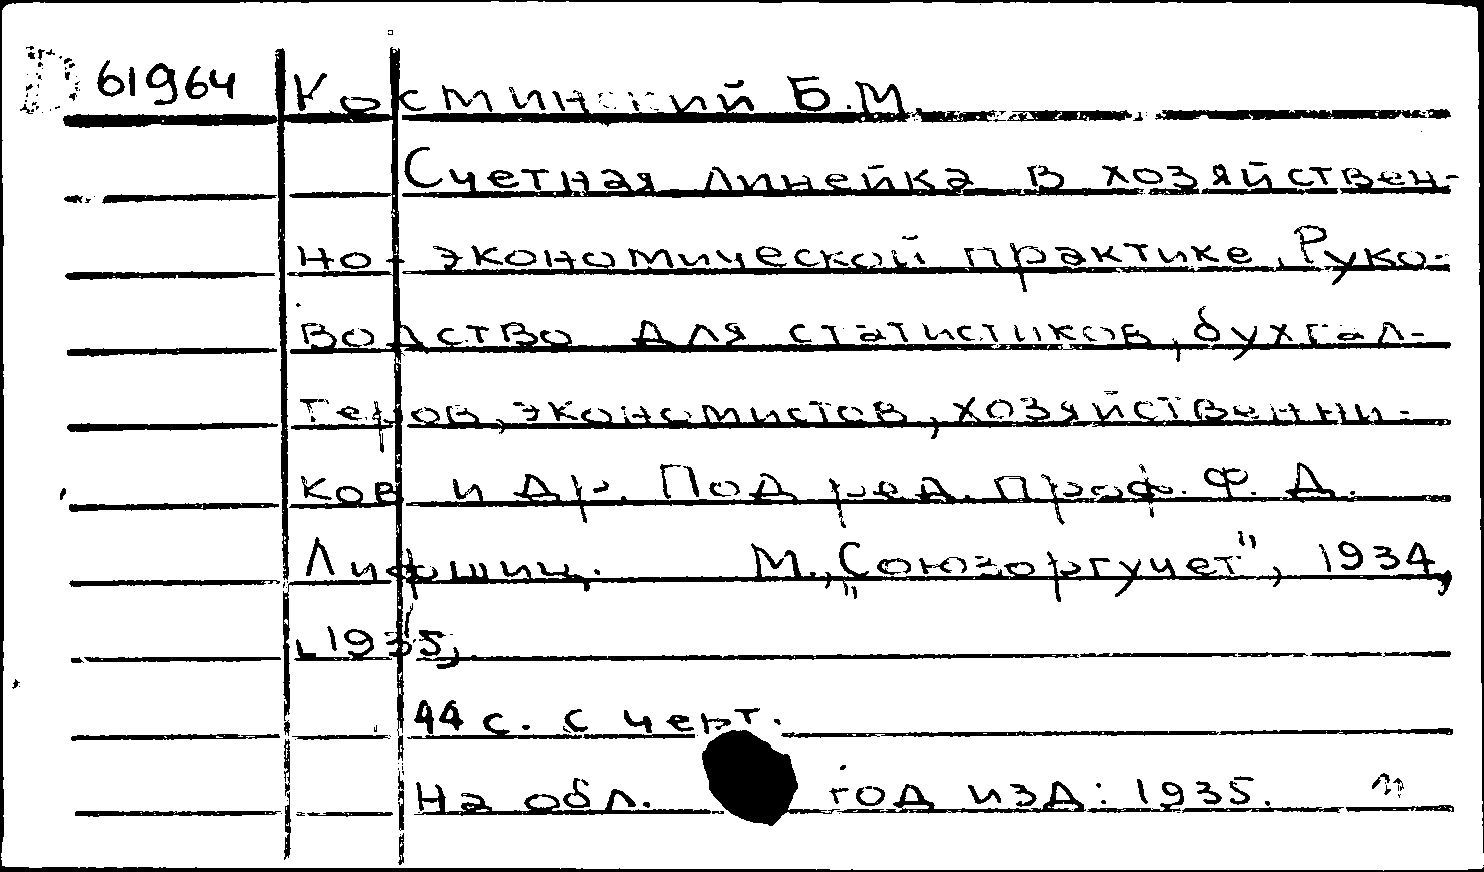 D 61964 Косминский Б.М.
Счетная линейка в хозяйствен-
но-экономической практике. Руко-
водство для статистиков, бухгал-
теров, экономистов, хозяйственни-
ков и др. Под ред. проф. Ф. Д.
Лифшиц. М., „Союзоргучет", 1934,
1935,
44 с. с черт.
На обл. год изд: 1935.